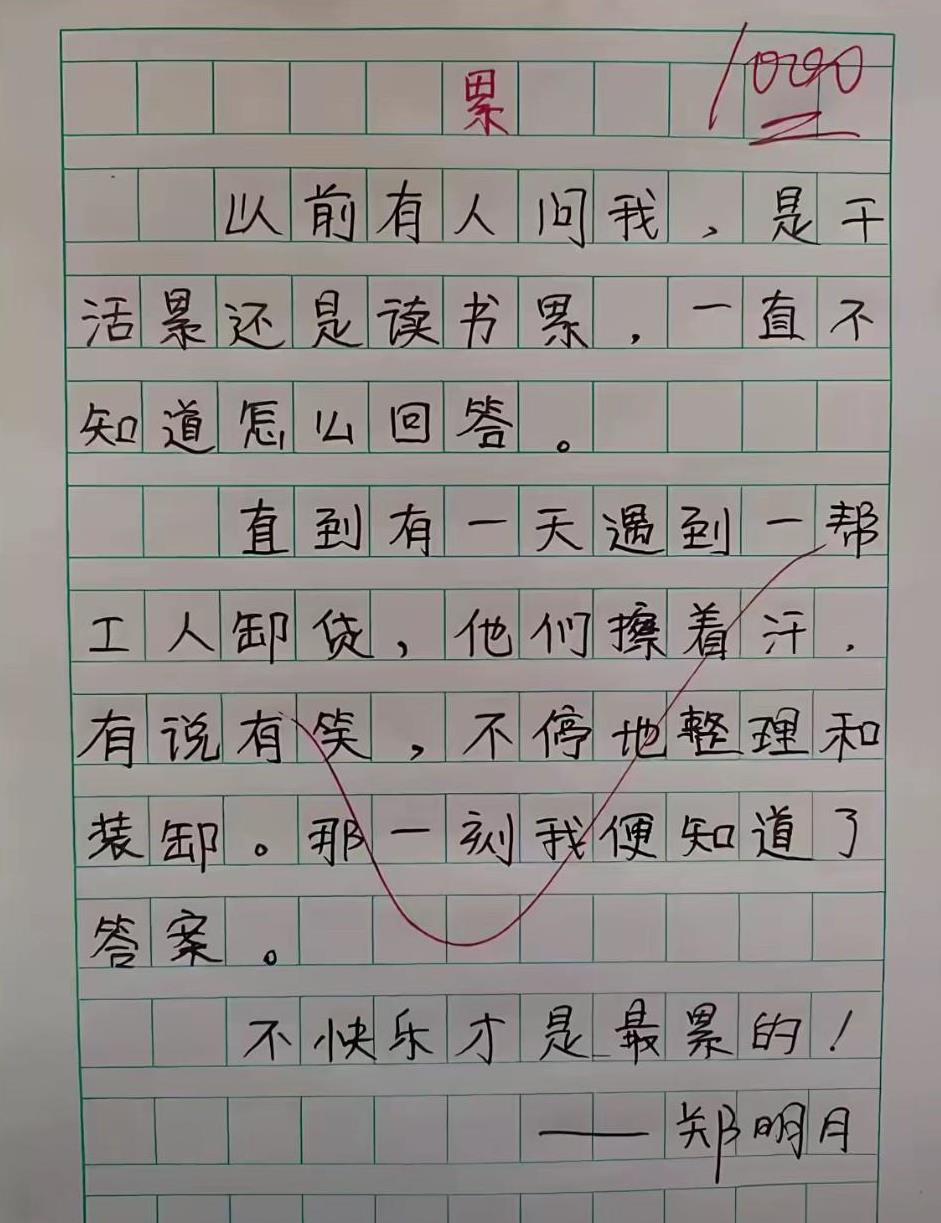 累
以前有人问我，是干
活累还是读书累，一直不
知道怎么回答。
直到有一天遇到一帮
工人卸货，他们擦着汗，
有说有笑，不停地整理和
装卸。那一刻我便知道了
答案。
不快乐才是最累的！
——郑明月